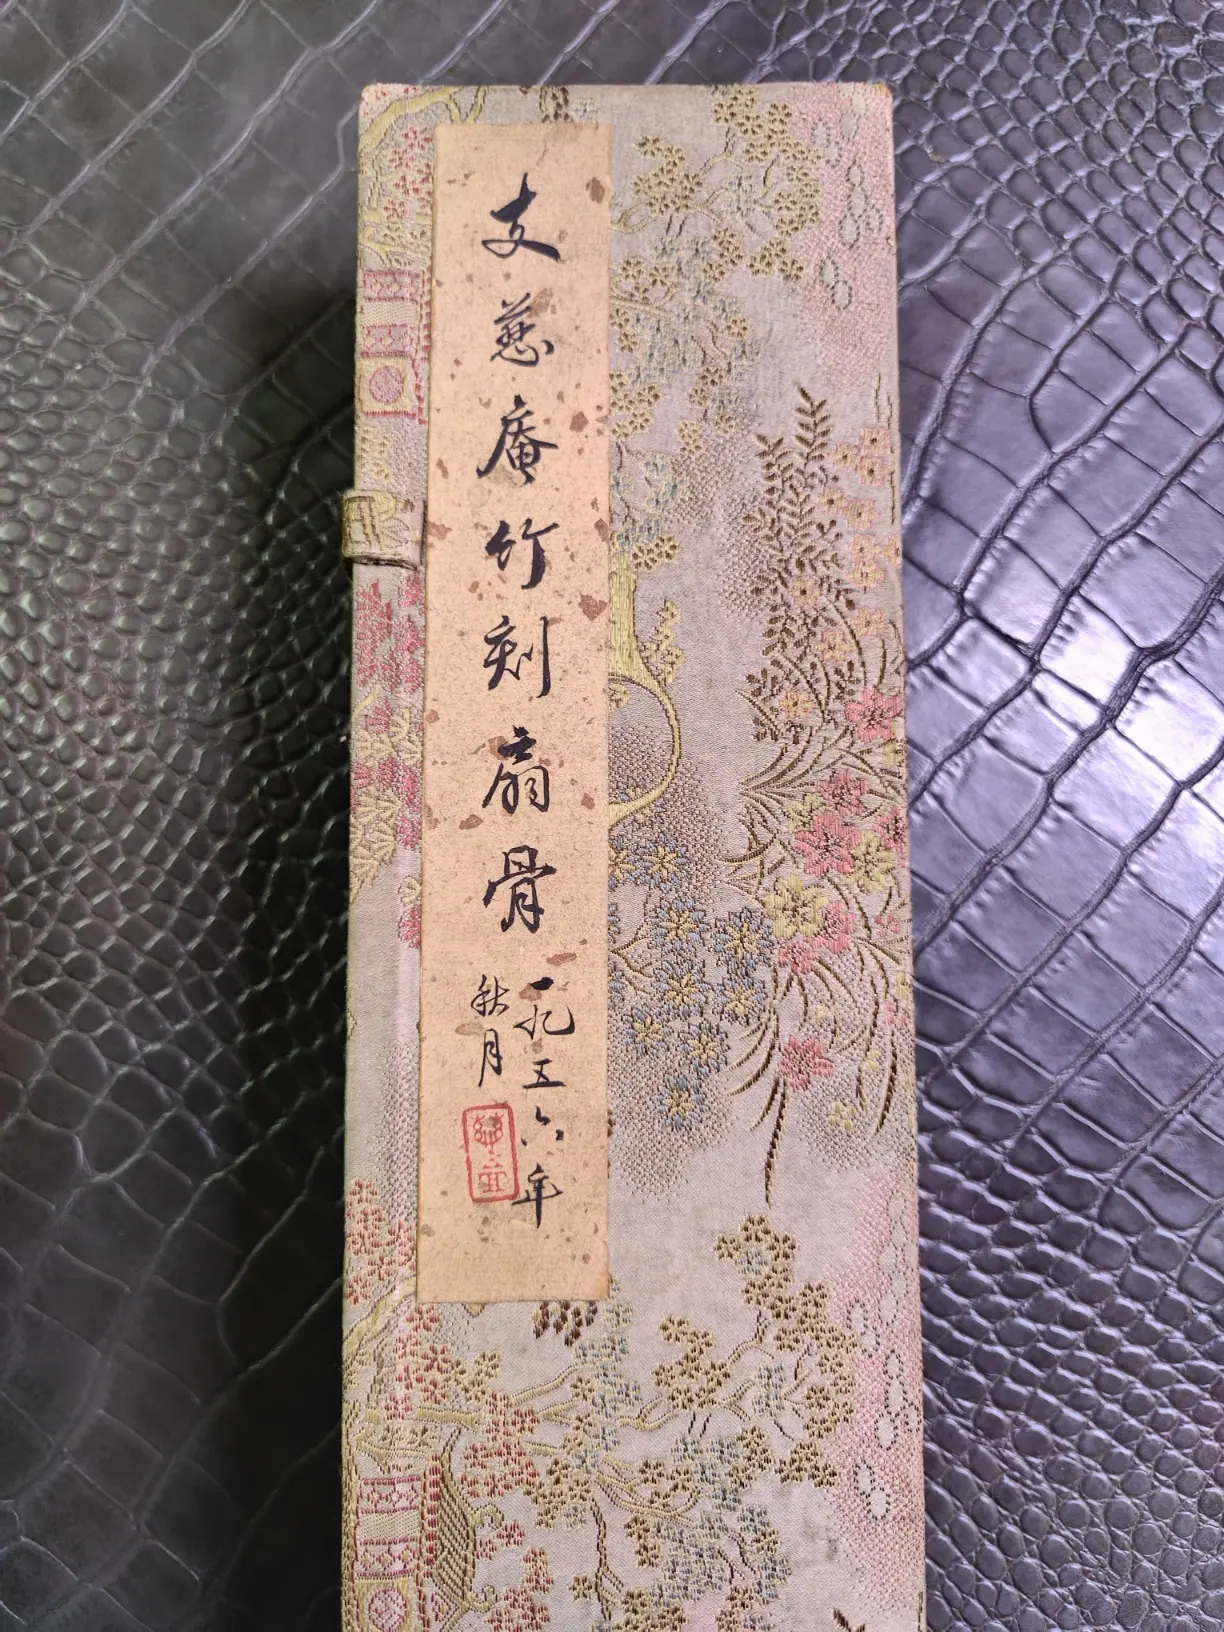 支慈庵竹刻扇骨
一九五六年
秋月